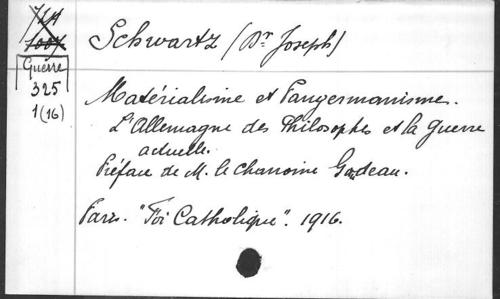 Schwartz (Dr Joseph)
Guerre
325
1(16)
Matérialisme et Pangermanisme.
L'Allemagne des Philosophes et la guerre
actuelle.
Préface de M. le chanoine Gaudeau.
Paris. "Foi Catholique". 1916.